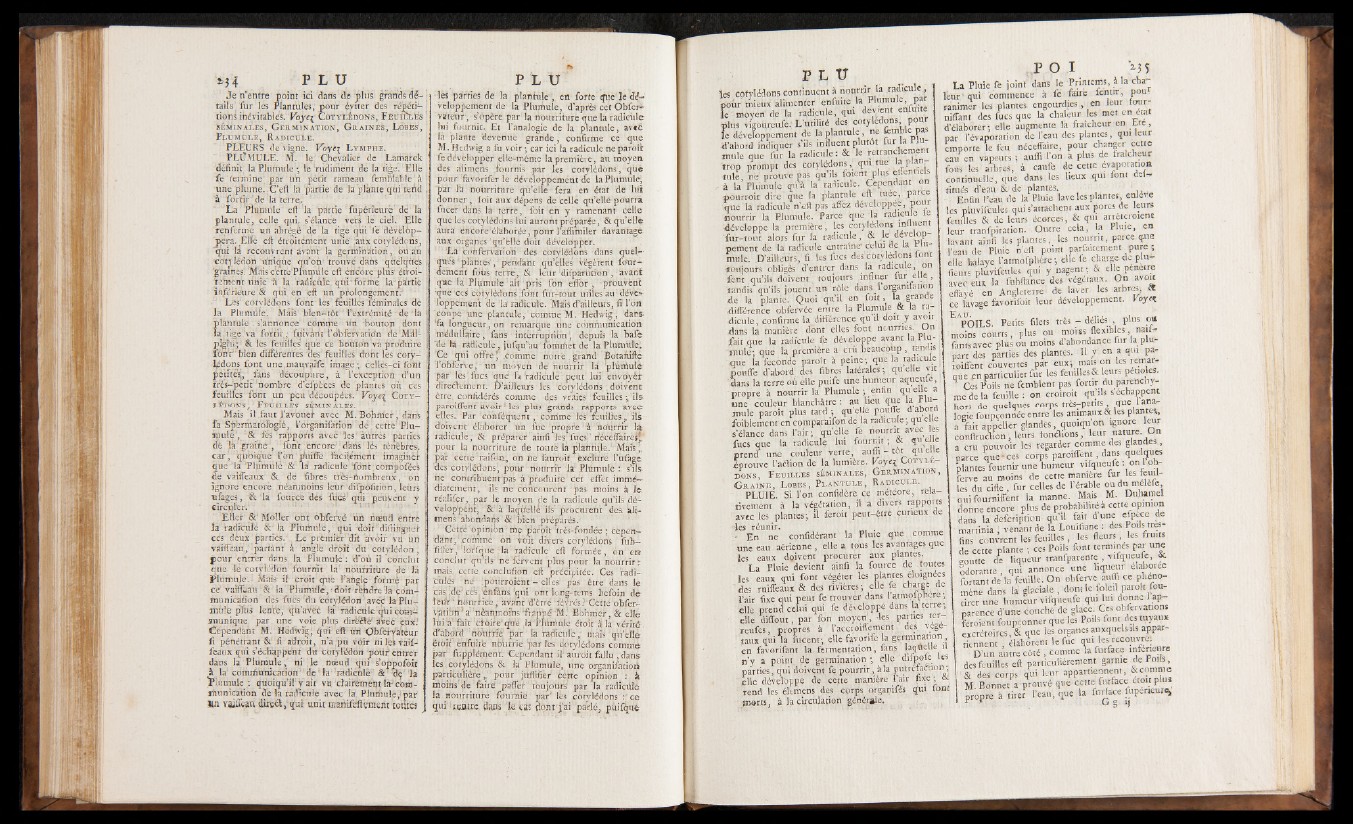 234 P L U
Je n'entre point ici dans de plus grands dé-
tails sur les Plantules, pour éviter des répéti-
tions inévitables. Voyez COTYLÉDONS, FEUILLES
SÉMINALES, GERMINATION, GRAINES, LOBES,
PLUMULE, RADICULE.
PLEURS de vigne. Voyez LYMPHE.
PLUMULE. M. le Chevalier de Lamarck
définit la Plumule ; le rudiment de la tige. Elle
se termine par un petit rameau semblable à
une plume. C'est la partie de la plante qui tend
à sortir de la terre.
La Plumule est la partie supérieure de la
plantule, celle qui s'élance vers le ciel. Elle
renferme un abrégé de la tige qui se dévelop-
pera. Elle est étroitement unie aux cotylédons,
qui la recouvrent avant la germination, ou au
cotylédon unique qu'on trouve dans quelques
graines. Mais cette Plumule est encore plus étroi-
tement unie à la radicule qui forme la partie
inférieure & qui en est un prolongement.
Les cotylédons sont les feuilles séminales de
la Plumule. Mais bien-tôt l'extrémité de la
plantule s'annonce comme un bouton dont
la tige va sortir, suivant l'observation de Mal-
pighi ; & les feuilles que ce bouton va produire
sont bien différentes des feuilles dont les coty-
lédons sont une mauvaise image ; celles-ci sont
petites, sans découpure, à l'exception d'un
très-petit nombre d'espèces de plantes où ces
feuilles sont un peu découpées. Voyez COTY-
LÉDONS, FEUILLES SÉMINALES.
Mais il faut l'avouer avec M. Bohmer, dans
sa Spermatologie, l'organisation de cette Plu-
mule, & ses rapports avec les autres parties
de la graine, sont encore dans les ténèbres,
car, quoique l'on puisse facilement imaginer
que la Plumule & la radicule sont composées
de vaisseaux & de fibres très-nombreux, on
ignore encore néanmoins leur disposition, leurs
usages, & la source des sucs qui peuvent y
circuler.
Eller & Moller ont observé un nœud entre
la radicule & la Plumule, qui doit distinguer
ces deux parties. Le premier dit avoir vu un
vaisseau, partant à angle droit du cotylédon,
pour entrer dans la Plumule : d'où il conclut
que le cotylédon fournit la nourriture de la
Plumule. Mais il croit que l'angle formé par
ce vaisseau & la Plumule, doit rendre la com-
munication des sucs du cotylédon avec la Plu-
mule plus lente, qu'avec la radicule qui com-
munique par une voie plus directe avec eux.
Cependant M. Hedwig, qui est un Observateur
si pénétrant & si adroit, n'a pu voir ni les vais-
seaux qui s'échappent du cotylédon pour entrer
dans la Plumule, ni le nœud qui s'opposoit
à la communication de la radicule & de la
Plumule : quoiqu'il vait vu clairement la com-
munication de la radicule avec la Plumule, par
un vaisseau direct, qui unit manifestement toutes
P L U
les parties de la plantule, en sorte que le dé-
veloppement de la Plumule, d'après cet Obser-
vateur, s'opère par la nourriture que la radicule
lui fournit. Et l'analogie de la plantule, avec
la plante devenue grande, confirme ce que
M. Hedwig a su voir ; car ici la radicule ne paroît
se développer elle-même la première, au moyen
des alimens fournis par les cotylédons, que
pour favoriser le développement de la Plumule,
par la nourriture qu'elle sera en état de lui
donner, soit aux dépens de celle qu'elle pourra
sucer dans la terre, soit en y ramenant celle
que les cotylédons lui auront préparée, & qu'elle
aura encore élaborée, pour l'assimiler davantage
aux organes qu'elle doit développer.
La conservation des cotylédons dans quel-
ques plantes, pendant qu'elles végètent sour-
dement sous terre, & leur disparution, avant
que la Plumule ait pris son essor, prouvent
que ces cotylédons sont sur-tout utiles au déve-
loppement de la radicule. Mais d'ailleurs, si l'on
coupe une plantule, comme M. Hedwig, dans
sa longueur, on remarque une communication
médullaire, sans interruption, depuis la base
de la radicule, jusqu'au sommet de la Plumule.
Ce qui offre, comme notre grand Botaniste
l'observe, un moyen de nourrir la plumule
par les sucs que la radicule peut lui envoyer
directement. D'ailleurs les cotylédons doivent
être considérés comme des vraies feuilles ; ils
paroissent avoir les plus grands rapports avec
elles. Par conséquent, comme les feuilles, ils
doivent élaborer un suc propre à nourrir la
radicule, & préparer ainsi les sucs nécessaires
pour la nourriture de toute la plantule. Mais,
par cette raison, on ne sauroit exclure l'usage
des cotylédons, pour nourrir la Plumule : s'ils
ne contribuent pas à produire cet effet immé-
diatement, ils ne concourent pas moins à le
réaliser, par le moyen de la radicule qu'ils dé-
veloppent, & à laquelle ils procurent des ali-
mens abondans & bien préparés.
Cette opinion me paroît très-fondée ; cepen-
dant, comme on voit divers cotylédons sub-
sister, lorsque la radicule est formée, on en
conclut qu'ils ne servent plus pour la nourrir :
mais cette conclusion est précipitée. Ces radi-
cules ne pourroient-elles pas être dans le
cas de ces enfans qui ont long-tems besoin de
leur nourrice, avant d'être sevrés? Cette obser-
vation a néanmoins frappé M. Bohmer, & elle
lui a fait croire que la Plumule étoit à la vérité
d'abord nourrie par la radicule, mais qu'elle
étoit ensuite nourrie par les cotylédons comme
par supplément. Cependant il auroit fallu, dans
les cotylédons & la Plumule, une organisation
particulière, pour justifier cette opinion : à
moins de faire passer toujours par la radicule
la nourriture fournie par les cotylédons : ce
qui rentre dans le cas dont j'ai parlé, puisque
P L U
les cotylédons continuent à nourrir la radicule,
pour mieux alimenter ensuite la Plumule, par
le moyen de la radicule, qui devient ensuite
plus vigoureuse. L'utilité des cotylédons, pour
le développement de la plantule, ne semble pas
d'abord indiquer s'ils influent plutôt sur la Plu-
mule que sur la radicule : & le retranchement
trop prompt des cotylédons, qui tue la plan-
tule, ne prouve pas qu'ils soient plus essentiels
à la Plumule qu'à la radicule. Cependant on
pourroit dire que la plantule est tuée, parce
que la radicule n'est pas assez développée, pour
nourrir la Plumule. Parce que la radicule se
développe la première, les cotylédons influent
sur-tout alors sur la radicule, & le dévelop-
pement de la radicule entraîne celui de la Plu-
mule. D'ailleurs, si les sucs des cotylédons sont
toujours obligés d'entrer dans la radicule, on
sent qu'ils doivent toujours influer sur elle,
tandis qu'ils jouent un rôle dans l'organisation
de la plante. Quoi qu'il en soit, la grande
différence observée entre la Plumule & la ra-
dicule, confirme la différence qu'il doit y avoir
dans la manière dont elles sont nourries. On
sait que la radicule se développe avant la Plu-
mule ; que la première a crû beaucoup, tandis
que la seconde paroît à peine ; que la radicule
pousse d'abord des fibres latérales ; qu'elle vit
dans la terre où elle puise une humeur aqueuse,
propre à nourrir la Plumule ; enfin qu'elle a
une couleur blanchâtre : au lieu que la Plu-
mule paroît plus tard ; qu'elle pousse d'abord
foiblement en comparaison de la radicule ; qu'elle
s'élance dans l'air ; qu'elle se nourrit avec les
sucs que la radicule lui fournit ; & qu'elle
prend une couleur verte, aussi-tôt qu'elle
éprouve l'action de la lumière. Voyez COTYLÉ-
DONS, FEUILLES SÉMINALES, GERMINATION,
GRAINE, LOBES, PLANTULE, RADICULE.
PLUIE. Si l'on considère ce météore, rela-
tivement à la végétation, il a divers rapports
avec les plantes ; il seroit peut-être curieux de
les réunir.
En ne considérant la Pluie que comme
une eau aérienne, elle a tous les avantages que
les eaux doivent procurer aux plantes.
La Pluie devient ainsi la source de toutes
les eaux qui font végéter les plantes éloignées
des ruisseaux & des rivières ; elle se charge de
l'air fixe qui peut se trouver dans l'atmosphère ;
elle prend celui qui se développe dans la terre ;
elle dissout, par son moyen, les parties ter-
reuses, propres à l'accroissement des végé-
taux qui la sucent ; elle favorise la germination,
en favorisant la fermentation, sans laquelle il
n'y a point de germination ; elle dispose les
parties, qui doivent se pourrir, à la putréfaction ;
elle développe de cette manière l'air fixe ; &
rend les élémens des corps organisés qui sont
morts, à la circulation générale.
P O I 235
La Pluie se joint dans le Printems, à la cha-
leur qui commence à se faire sentir, pour
ranimer les plantes engourdies, en leur four-
nissant des sucs que la chaleur les met en état
d'élaborer ; elle augmente la fraîcheur en Eté,
par l'évaporation de l'eau des plantes, qui leur
emporte le feu nécessaire, pour changer cette
eau en vapeurs ; aussi l'on a plus de fraîcheur
sous les arbres, à cause de cette évaporation
continuelle, que dans les lieux qui sont des-
titués d'eau & de plantes.
Enfin l'eau de la Pluie lave les plantes, enlève
les pluviscules qui s'attachent aux pores de leurs
feuilles & de leurs écorces, & qui arrêteroient
leur transpiration. Outre cela, la Pluie, en
lavant ainsi les plantes, les nourrit, parce que
l'eau de Pluie n'est point parfaitement pure ;
elle balaye l'atmosphère ; elle se charge de plu-
sieurs pluviscules qui y nagent ; & elle pénètre
avec eux la substance des végétaux. On avoit
essayé en Angleterre de laver les arbres, &
ce lavage favorisoit leur développement. Voyez
EAU.
POILS. Petits filets très-déliés, plus ou
moins courts, plus ou moins flexibles, nais-
sants avec plus ou moins d'abondance sur la plu-
part des parties des plantes. Il y en a qui pa-
roissent couvertes par eux ; mais on les remar-
que en particulier sur les feuilles & leurs pétioles.
Ces Poils ne semblent pas sortir du parenchy-
me de la feuille : on croiroit qu'ils s'échappent
hors de quelques corps très-petits, que l'ana-
logie soupçonnée entre les animaux & les plantes,
a fait appeller glandes, quoiqu'on ignore leur
construction, leurs fonctions, leur nature. On
a cru pouvoir les regarder comme des glandes,
parce que ces corps paroissent, dans quelques
plantes fournir une humeur visqueuse : on l'ob-
serve au moins de cette manière sur les feuil-
les du ciste, sur celles de l'érable ou du mélèse,
qui fournissent la manne. Mais M. Duhamel
donne encore plus de probabilité à cette opinion
dans la description qu'il fait d'une espèce de
martinia, venant de la Louisiane : des Poils très-
fins couvrent les feuilles, les fleurs, les fruits
de cette plante ; ces Poils sont terminés par une
goutte de liqueur transparente, visqueuse, &
odorante, qui annonce une liqueur élaborée
sortant de la feuille. On observe aussi ce phéno-
mène dans la glaciale, dont le soleil paroît fou-
tirer une humeur visqueuse qui lui donne l'ap-
parence d'une couche de glace. Ces observations
feroient soupçonner que les Poils sont des tuyaux
excrétoires, & que les organes auxquels ils appar-
tiennent, élaborent le suc qui les recouvre.
D'un autre côté, comme la surface inférieure
des feuilles est particulièrement garnie de Poils,
& des corps qui leur appartiennent, & comme
M. Bonnet a prouvé que cette surface étoit plus
propre à tirer l'eau, que la surface supérieure,
G g ij